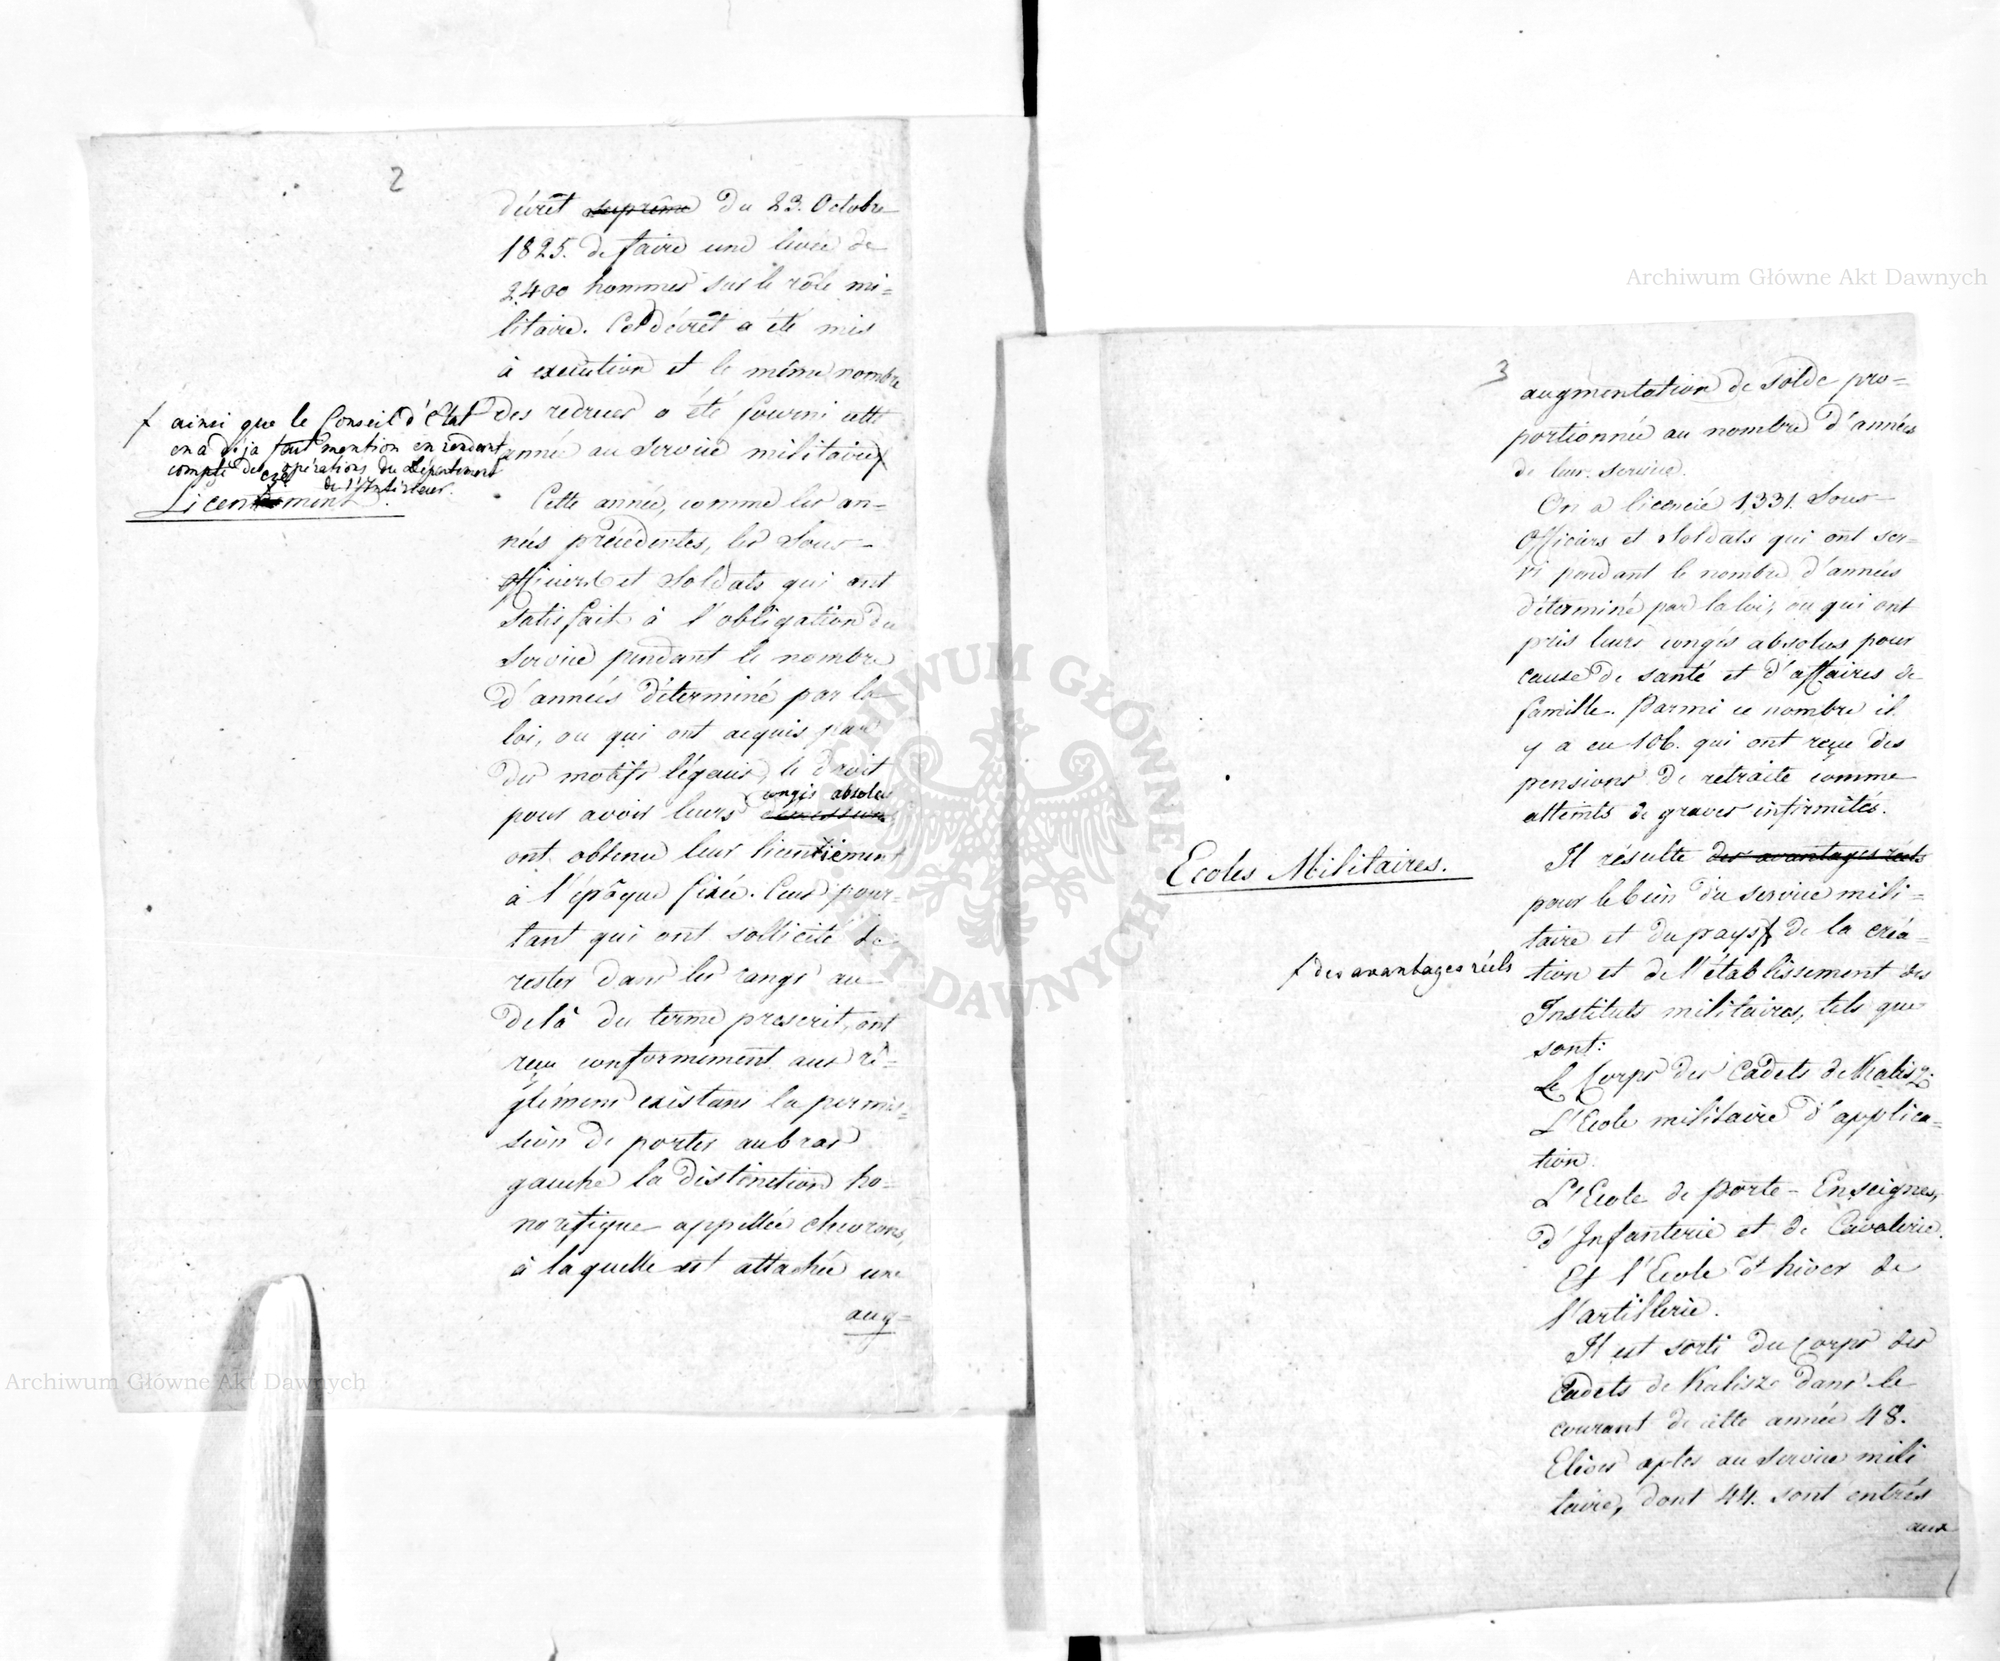 2
décrèt suprême du 23. Octobre
1825. de faire une levée de
2400 hommes sur le rôle mi=
litaire. Cet décrèt a été mis
à execution et le même nombre
des recrues a été fourni cette
année au service militaire ƒ
ƒ ainsi que le Conseil d'Etat
en a déja fait mention en rendant
compte des opérations du Département
de l'Intérieur.
Licenciement.
Cette année, comme les an=
nées précédentes, les Sous-
officiers et Soldats qui ont
satisfait à l'obligation du
service pendant le nombre
d'années déterminé par la
loi, ou qui ont acquis par
des motifs légaux, le droit
congés absolus
pour avoir leurs
ont obtenu leur licenciement
à l'époque fixée. Ceux pour-
tant qui ont sollicité de
rester dans les rangs au-
delà du terme prescrit, ont
reçu conformément aux ré-
glémens existans la permis-
sion de porter au bras
gauche la distinction ho=
norifique appellée chevrons,
à laquelle est attachée une
aug=
3
augmentation de solde pro=
portionnée au nombre d'années
de leur service.
On a licencié 1,331. Sous-
Officiers et Soldats qui ont ser=
vi pendant le nombre d'années
déterminé par la loi, ou qui ont
pris leurs congés absolus pour
cause de santé et d'affaires de
famille. Parmi ce nombre il
y a eu 106. qui ont reçu des
pensions de retraite comme
atteints de graves infirmités.
Ecoles Militaires.
Il résulte des avantages réels
pour le bien du service mili=
taire et du pays ƒ de la créa=
ƒ des avantages réels
tion et de l'établissement des
Instituts militaires, tels que
sont:
Le Corps des Cadets de Kalisz.
L'Ecole militaire d'applica=
tion.
L'Ecole de porte-Enseignes,
d'Infanterie et de Cavalerie.
Et l'Ecole d'hiver de
l'artillerie.
Il est sorti du Corps des
Cadets de Kalisz dans le
courant de cette année 48.
Elèves aptes au service mili
taire, dont 44. sont entrés
aux
Archiwum Główne Akt Dawnych
Archiwum Główne Akt Dawnych
ARCHIWUM GŁÓWNE AKT DAWNYCH